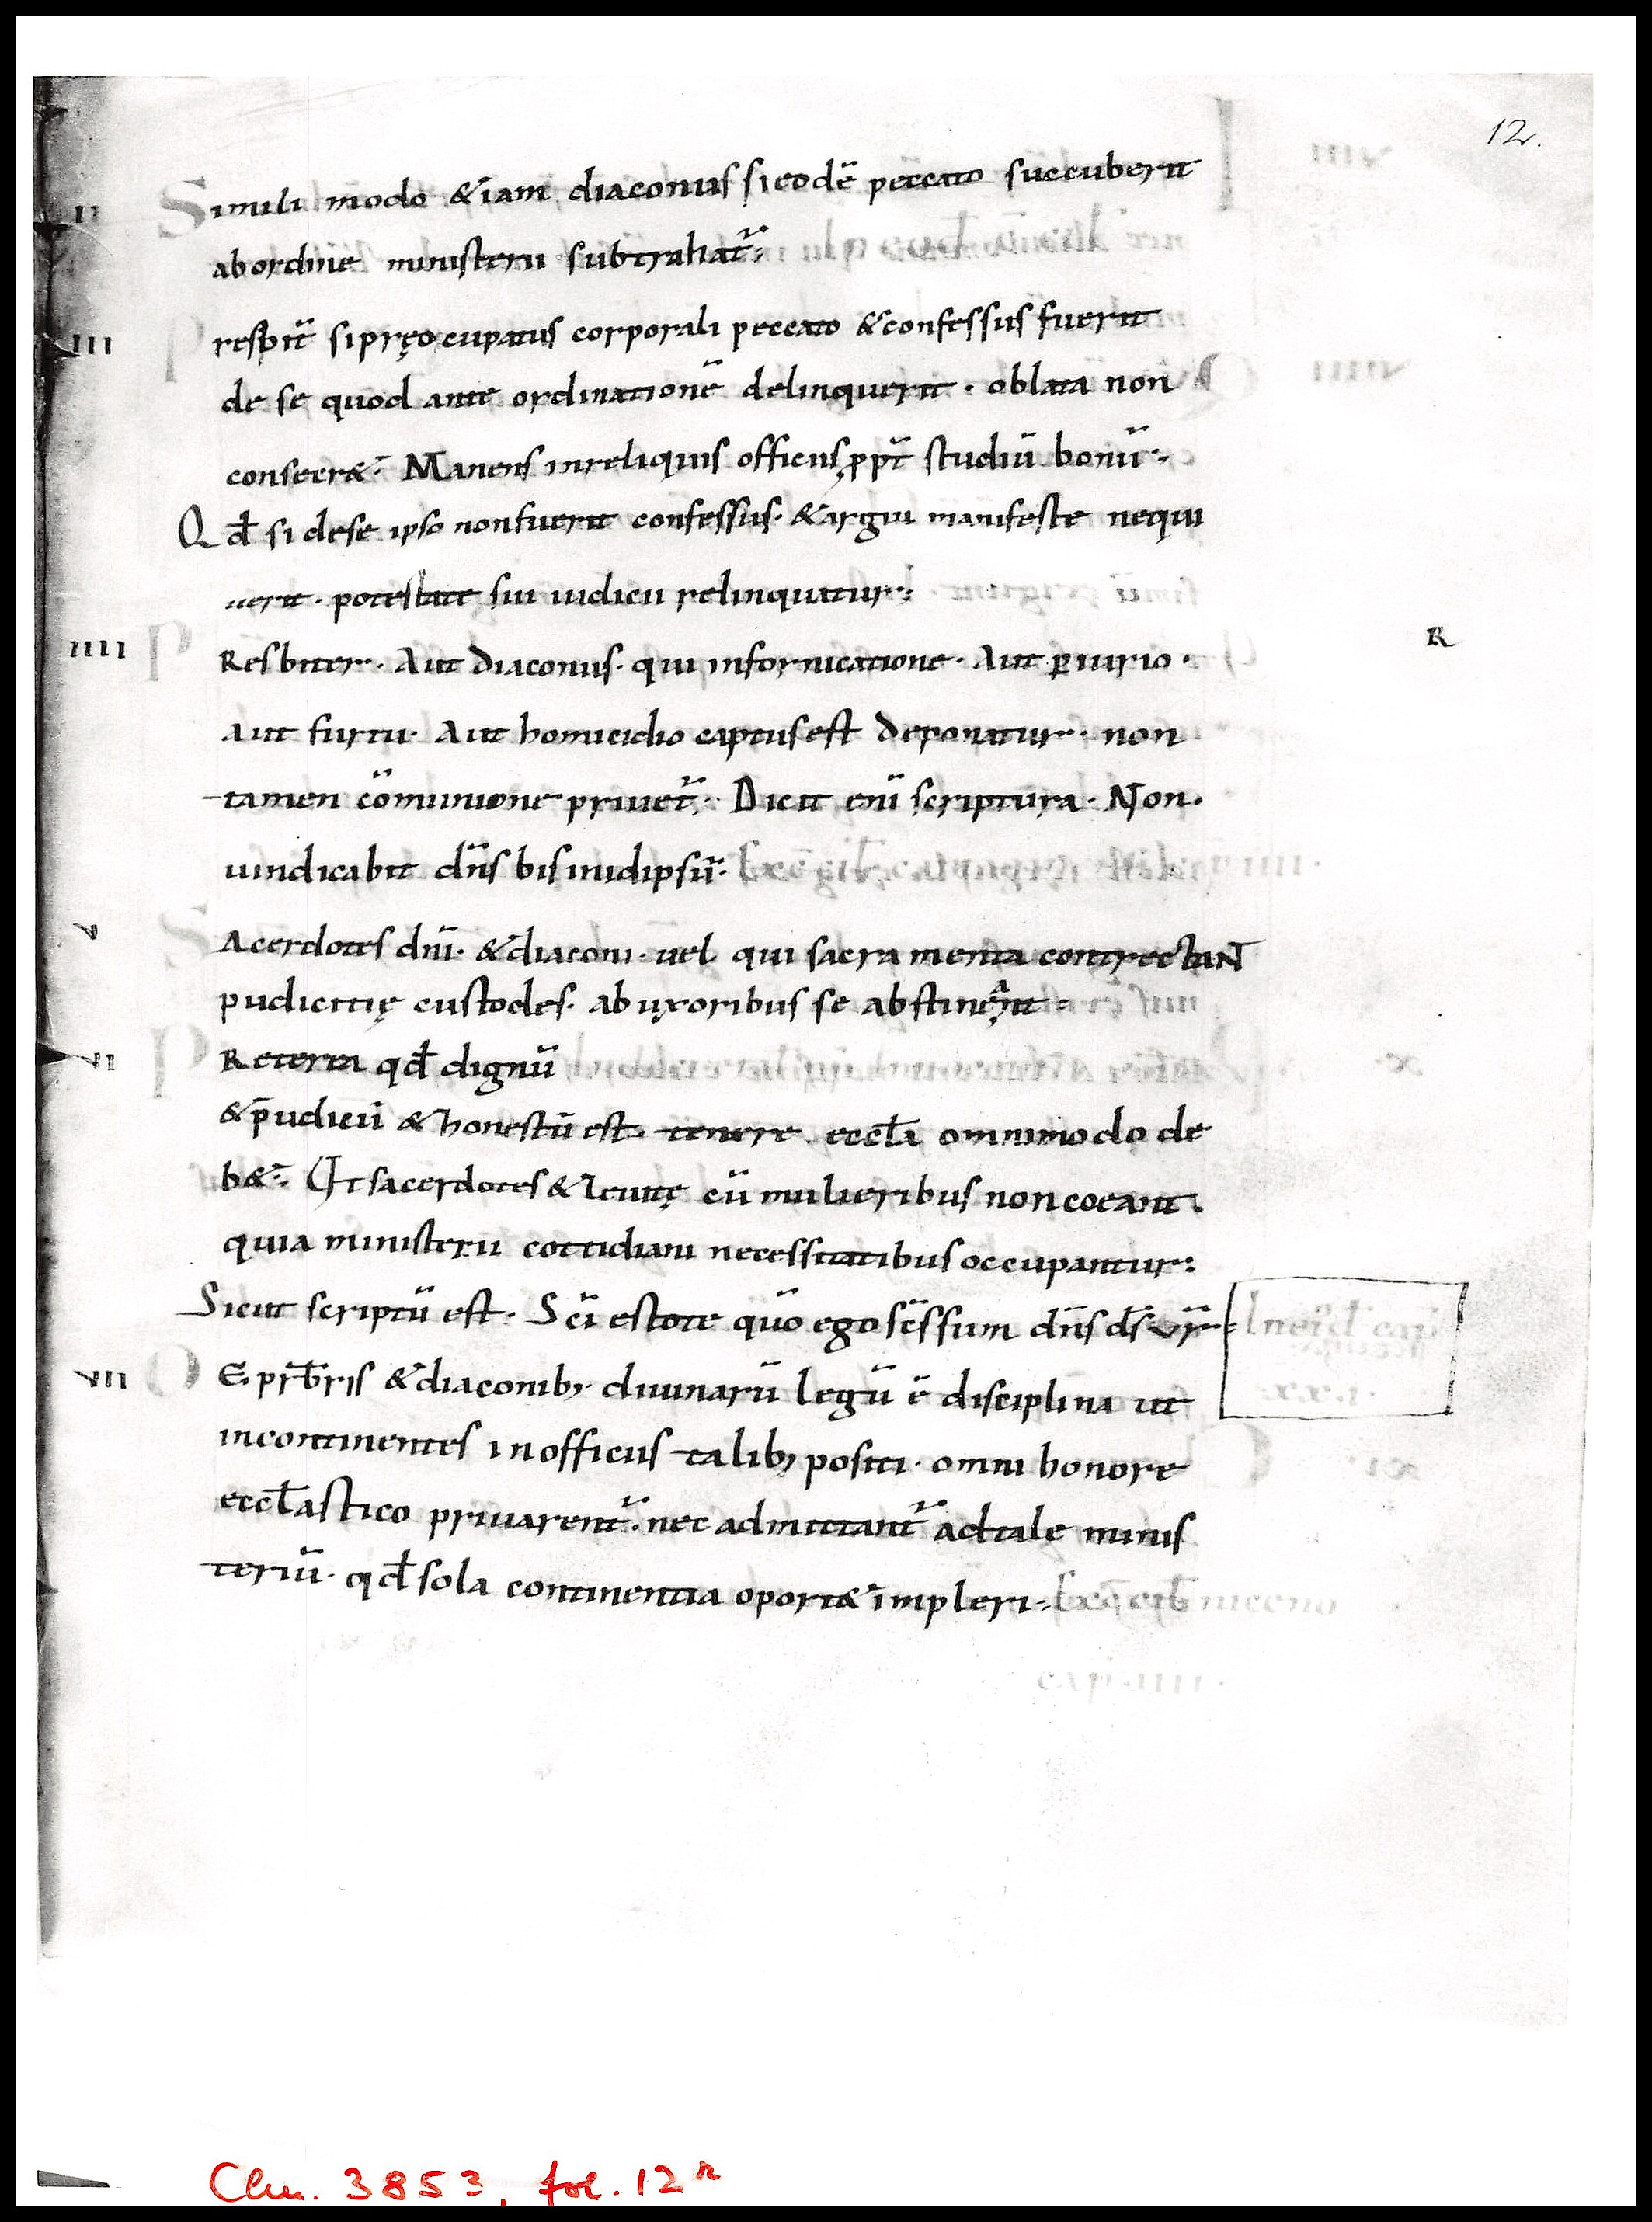 12r.
II Simili modo &iam diaconus si eodē peccato succuberit
ab ordine ministerii subtrahat̄ur
III P resbit̄ si pręocupatus corporali peccato & confessus fuerit
de se quod ante ordinationē delinquerit · oblata non
consecr&· Manens in reliquis officiis ꝓpt̄ studiū bonū·
Qd̄ si de se ipso non fuerit confessus· & argui manifeste nequi
uerit· potestate sui iudicii relinquatur·
R
IIII P Resbiter· Aut diaconus· qui in fornicatione· Aut ꝑiurio·
Aut furtu· Aut homicidio captus est deponatur· non
tamen cōmunione priuet̄· Dicit enī scriptura· Non·
uindicabit dn̄s bis in idipsū· Exc̄
V S Acerdotes dn̄i· & diaconi· uel qui sacramenta contrectant
pudicitię custodes· ab uxoribus se abstineant·
VI P Reterea qd̄ dignū
& pudicū & honestū est· tenere· eccl̄a omnimodo de
b&· Ut sacerdotes & leuitę cū mulieribus non coeant·
quia ministerii cottidiani necessitatibus occupantur:
Sicut scriptū est· Sc̄i estote quō ego sc̄s sum dn̄s ds̄ ur̄
VII D E prb̄ris & diaconibꝫ diuinarū legū ē disciplina ut
incontinentes in officiis talibꝫ positi· omni honore
eccl̄astico priuarent̄· nec admittant̄ ad tale minis
teriū· qd̄ sola continentia oport& impleri·
Clm. 3853, fol. 12r